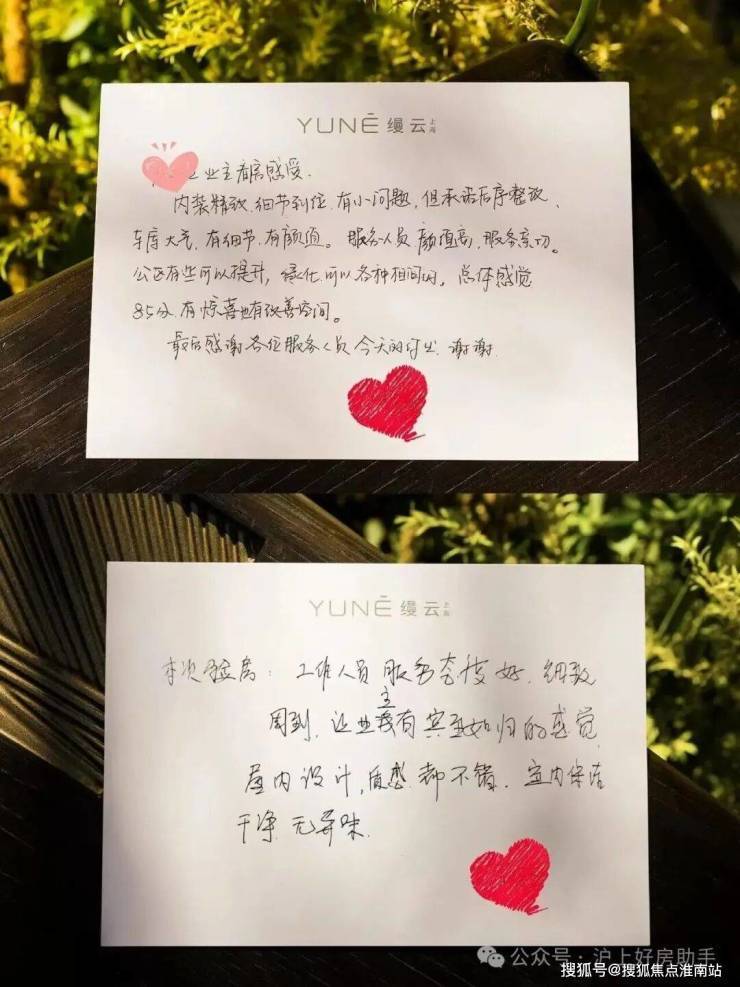 YUNĒ 缦云 上海
业主看房感受.
内装精致.细节到位.有小问题,但承诺后序整改、
车库大气,有细节.有颜值。服务人员颜值高,服务亲切。
公区有些可以提升,绿化.可以各种相间的,总体感觉
85分.有惊喜也有改善空间。
最后感谢各位服务人员今天的付出.谢谢.
YUNĒ 缦云 上海
本次验房:工作人员服务态度好.细致
周到,让业主我有宾至如归的感觉
屋内设计,质感都不错.室内保洁
干净 无异味.
公众号·沪上好房助手
搜狐号@搜狐焦点淮南站